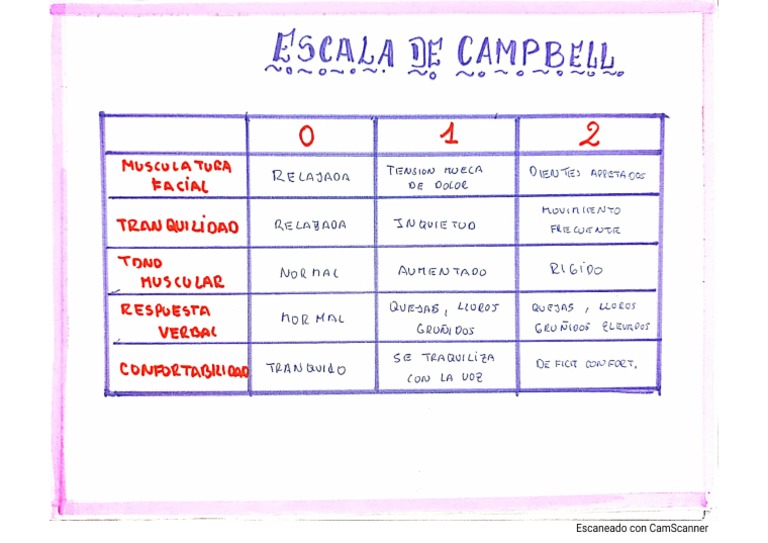 ESCALA DE CAMPBELL
0 1 2
MUSCULATURA FACIAL RELAJADA TENSION MUECA DE DOLOR DIENTES APRETADOS
TRANQUILIDAD RELAJADA INQUIETUD MOVIMIENTO FRECUENTE
TONO MUSCULAR NORMAL AUMENTADO RIGIDO
RESPUESTA VERBAL NORMAL QUEJAS, LLOROS GRUÑIDOS QUEJAS, LLOROS GRUÑIDOS ELEVADOS
CONFORTABILIDAD TRANQUILO SE TRAQUILIZA CON LA VOZ DEFICIT CONFORT.
Escaneado con CamScanner